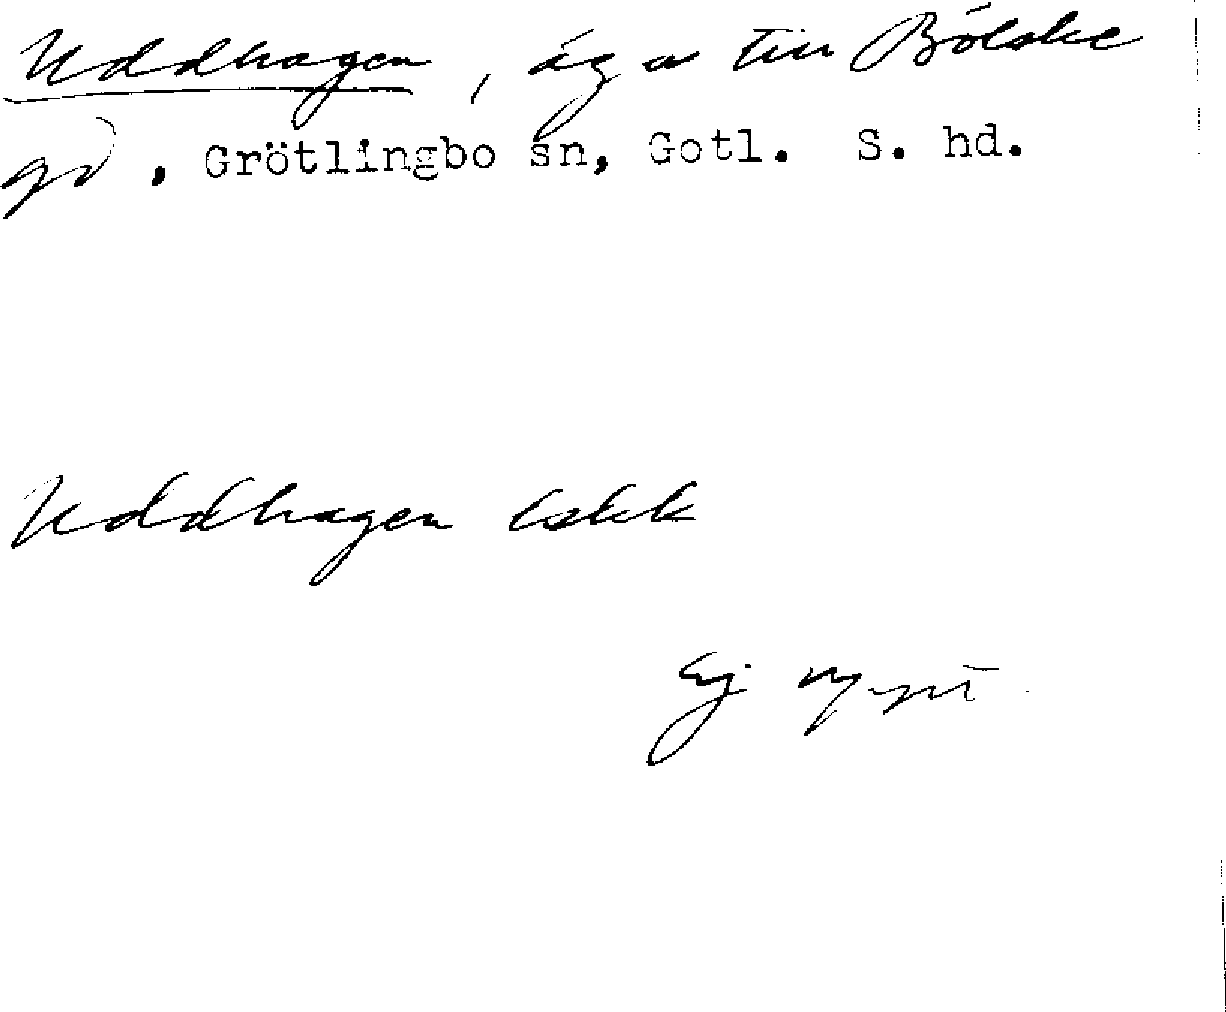 Uddhagen, äga till Bölske
gd, Grötlingbo sn, Gotl. S. hd.
Uddhagen
Ej nytt